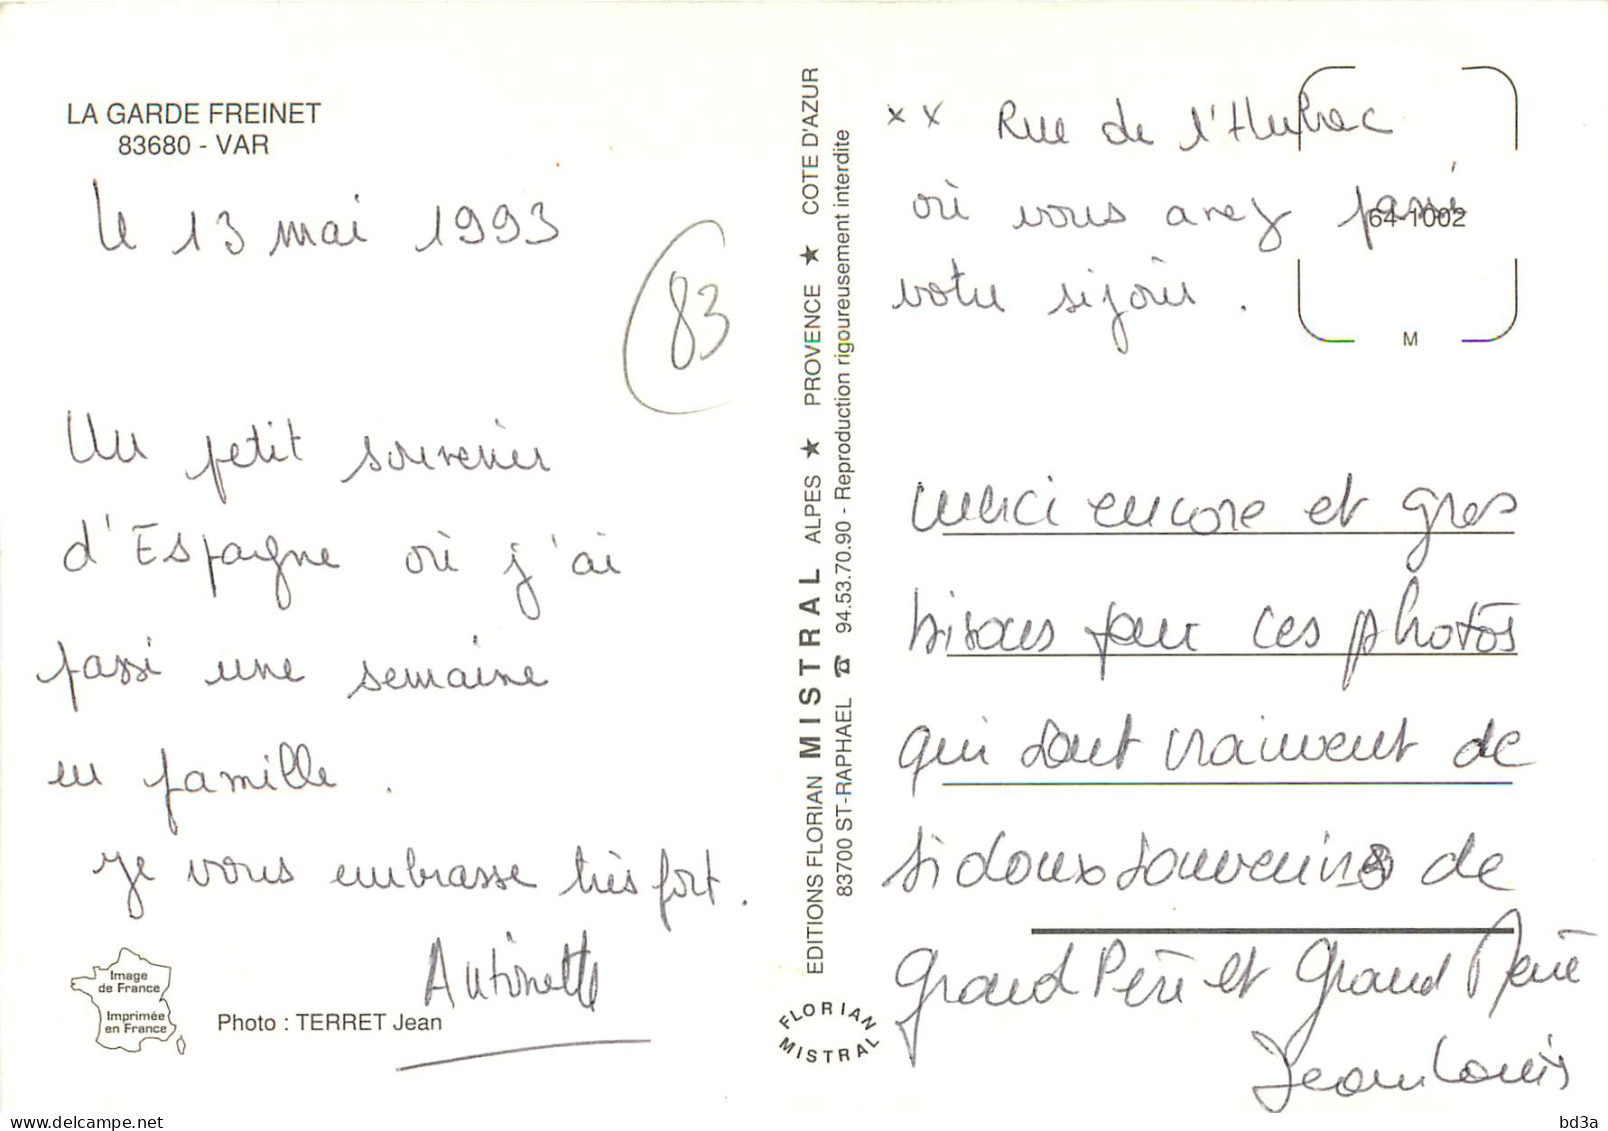 LA GARDE FREINET
83680 - VAR
le 13 mai 1993
83
Un petit souvenir
d'Espagne où j'ai
passé une semaine
en famille.
Je vous embrasse très fort.
Antoinette
Image
de France
Imprimée
en France
Photo : TERRET Jean
EDITIONS FLORIAN MISTRAL ALPES ★ PROVENCE ★ COTE D'AZUR
83700 ST-RAPHAEL ☎ 94.53.70.90 - Reproduction rigoureusement interdite
FLORIAN
MISTRAL
xx Rue de l'Hubac
où vous avez passé
64-1002
votre séjour.
M
merci encore et gros
bisous pour ces photos
qui sont vraiment de
si doux souvenirs de
Grand Père et Grand Mère
Jean Louis
bd3a